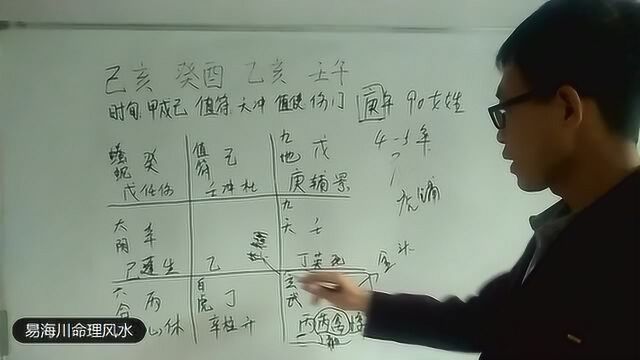 己亥 癸酉 乙亥 壬午
时旬:甲戌己 值符:天冲 值使:伤门 庚年 90女姓
螣蛇 癸 值符 乙 九地 戊 4-5年
戊任伤 壬冲杜 庚辅景
太阴 辛 九天 壬
己蓬生 乙 丁英死
六合 丙 白虎 丁 玄武
心休 辛柱开 丙丙禽
易海川命理风水